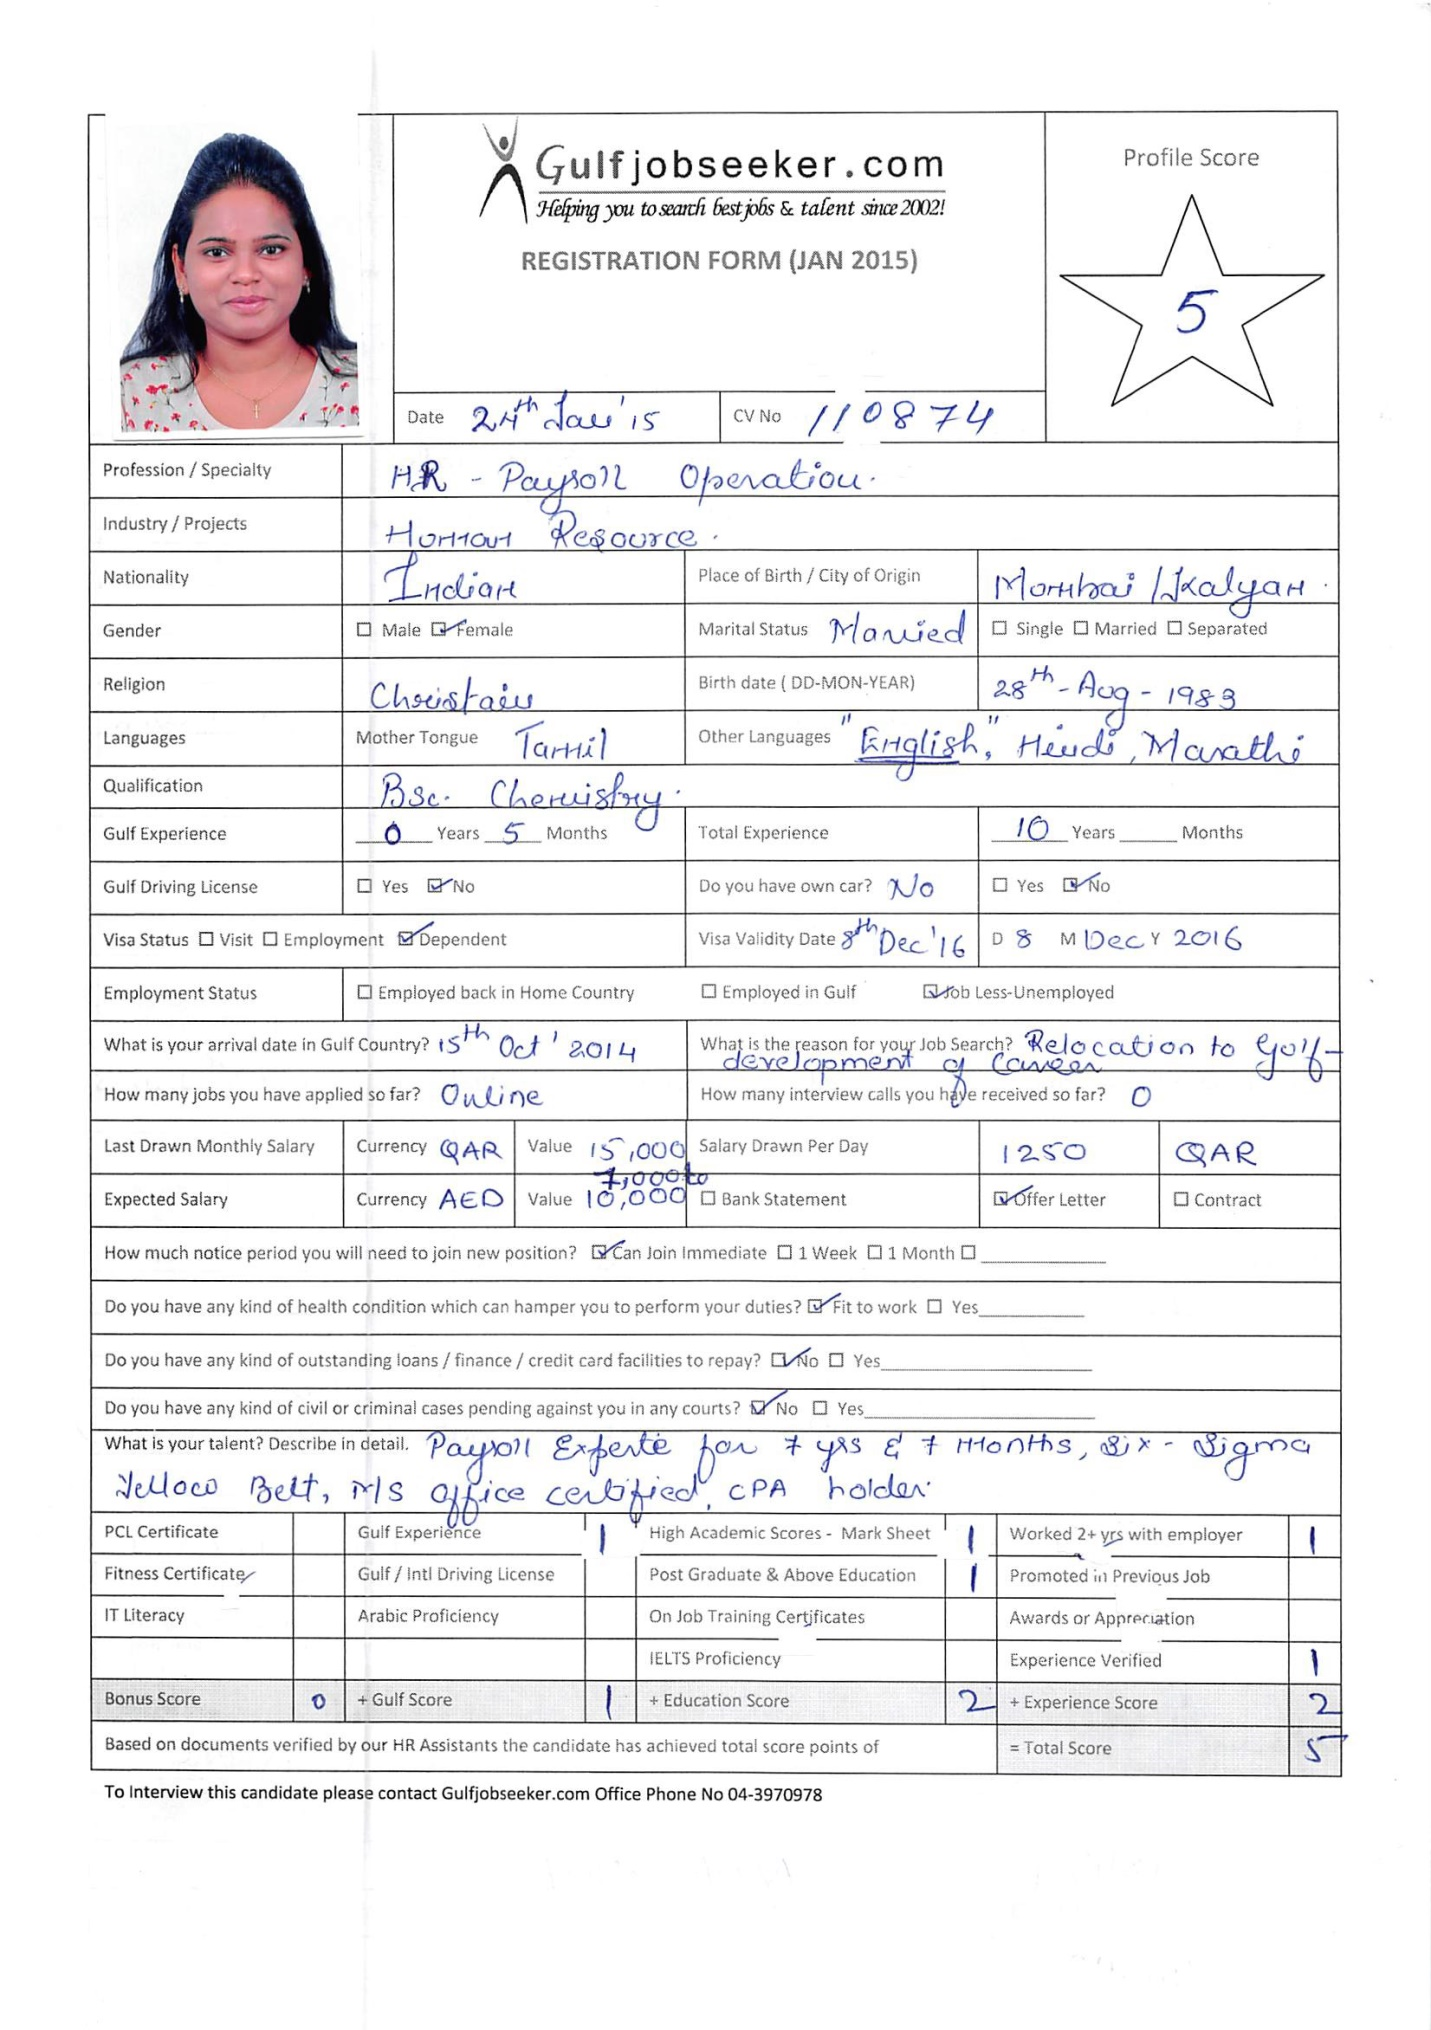 Gulfjobseeker.com
Helping you to search best jobs & talent since 2002!
REGISTRATION FORM (JAN 2015)
Profile Score
5
Date 24th Jan'15 CV No 110874
Profession / Specialty HR - Payroll Operation.
Industry / Projects Human Resource.
Nationality Indian Place of Birth / City of Origin Mumbai / Kalyan.
Gender ☐ Male ☑ Female Marital Status Married ☐ Single ☐ Married ☐ Separated
Religion Christain Birth date ( DD-MON-YEAR) 28th - Aug - 1983
Languages Mother Tongue Tamil Other Languages "English", Hindi, Marathi
Qualification Bsc. Chemistry.
Gulf Experience 0 Years 5 Months Total Experience 10 Years ____ Months
Gulf Driving License ☐ Yes ☑ No Do you have own car? No ☐ Yes ☑ No
Visa Status ☐ Visit ☐ Employment ☑ Dependent Visa Validity Date 8th Dec'16 D 8 M Dec Y 2016
Employment Status ☐ Employed back in Home Country ☐ Employed in Gulf ☑ Job Less-Unemployed
What is your arrival date in Gulf Country? 15th Oct' 2014 What is the reason for your Job Search? Relocation to Gulf-
development of Career
How many jobs you have applied so far? Online How many interview calls you have received so far? 0
Last Drawn Monthly Salary Currency QAR Value 15,000 Salary Drawn Per Day 1250 QAR
7,000 to
Expected Salary Currency AED Value 10,000 ☐ Bank Statement ☑ Offer Letter ☐ Contract
How much notice period you will need to join new position? ☑ Can Join Immediate ☐ 1 Week ☐ 1 Month ☐ ____
Do you have any kind of health condition which can hamper you to perform your duties? ☑ Fit to work ☐ Yes____
Do you have any kind of outstanding loans / finance / credit card facilities to repay? ☑ No ☐ Yes____
Do you have any kind of civil or criminal cases pending against you in any courts? ☑ No ☐ Yes____
What is your talent? Describe in detail. Payroll Experte for 7 yrs & 7 months, Six - Sigma
Yellow Belt, M/S office certified, CPA holder.
PCL Certificate Gulf Experience 1 High Academic Scores - Mark Sheet 1 Worked 2+ yrs with employer 1
Fitness Certificate Gulf / Intl Driving License Post Graduate & Above Education 1 Promoted in Previous Job
IT Literacy Arabic Proficiency On Job Training Certificates Awards or Appreciation
IELTS Proficiency Experience Verified 1
Bonus Score 0 + Gulf Score 1 + Education Score 2 + Experience Score 2
Based on documents verified by our HR Assistants the candidate has achieved total score points of = Total Score 5
To Interview this candidate please contact Gulfjobseeker.com Office Phone No 04-3970978